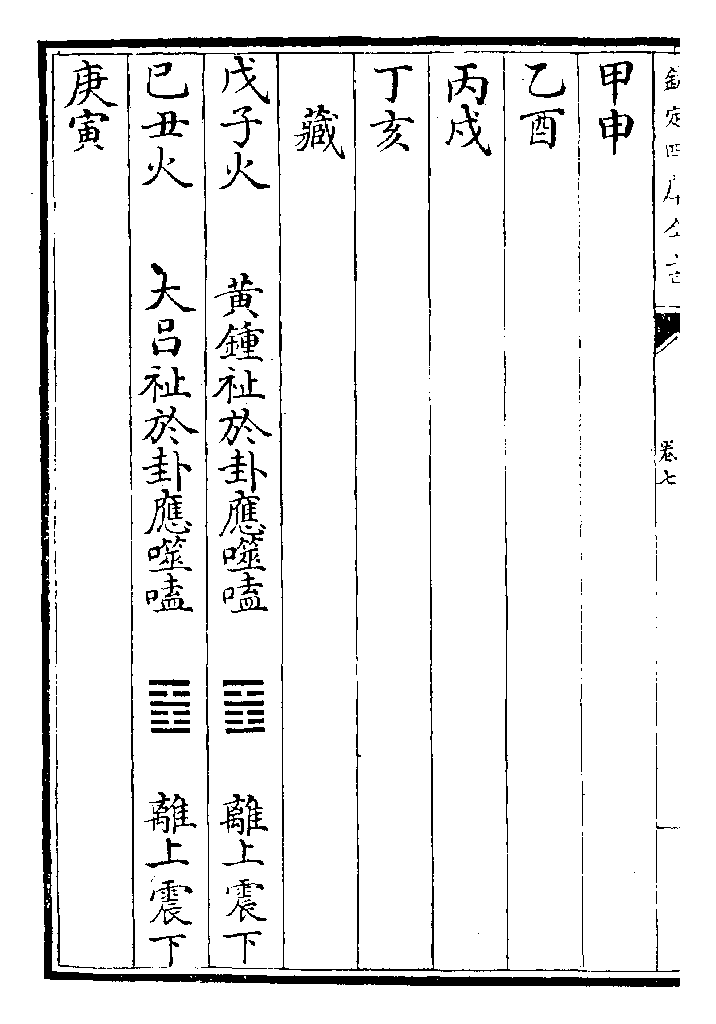 欽定四庫全書
卷七
甲申
乙酉
丙戌
丁亥
藏
戊子火 黄鍾祉於卦應噬嗑 ䷔ 離上震下
巳丑火 大吕祉於卦應噬嗑 ䷔ 離上震下
庚寅